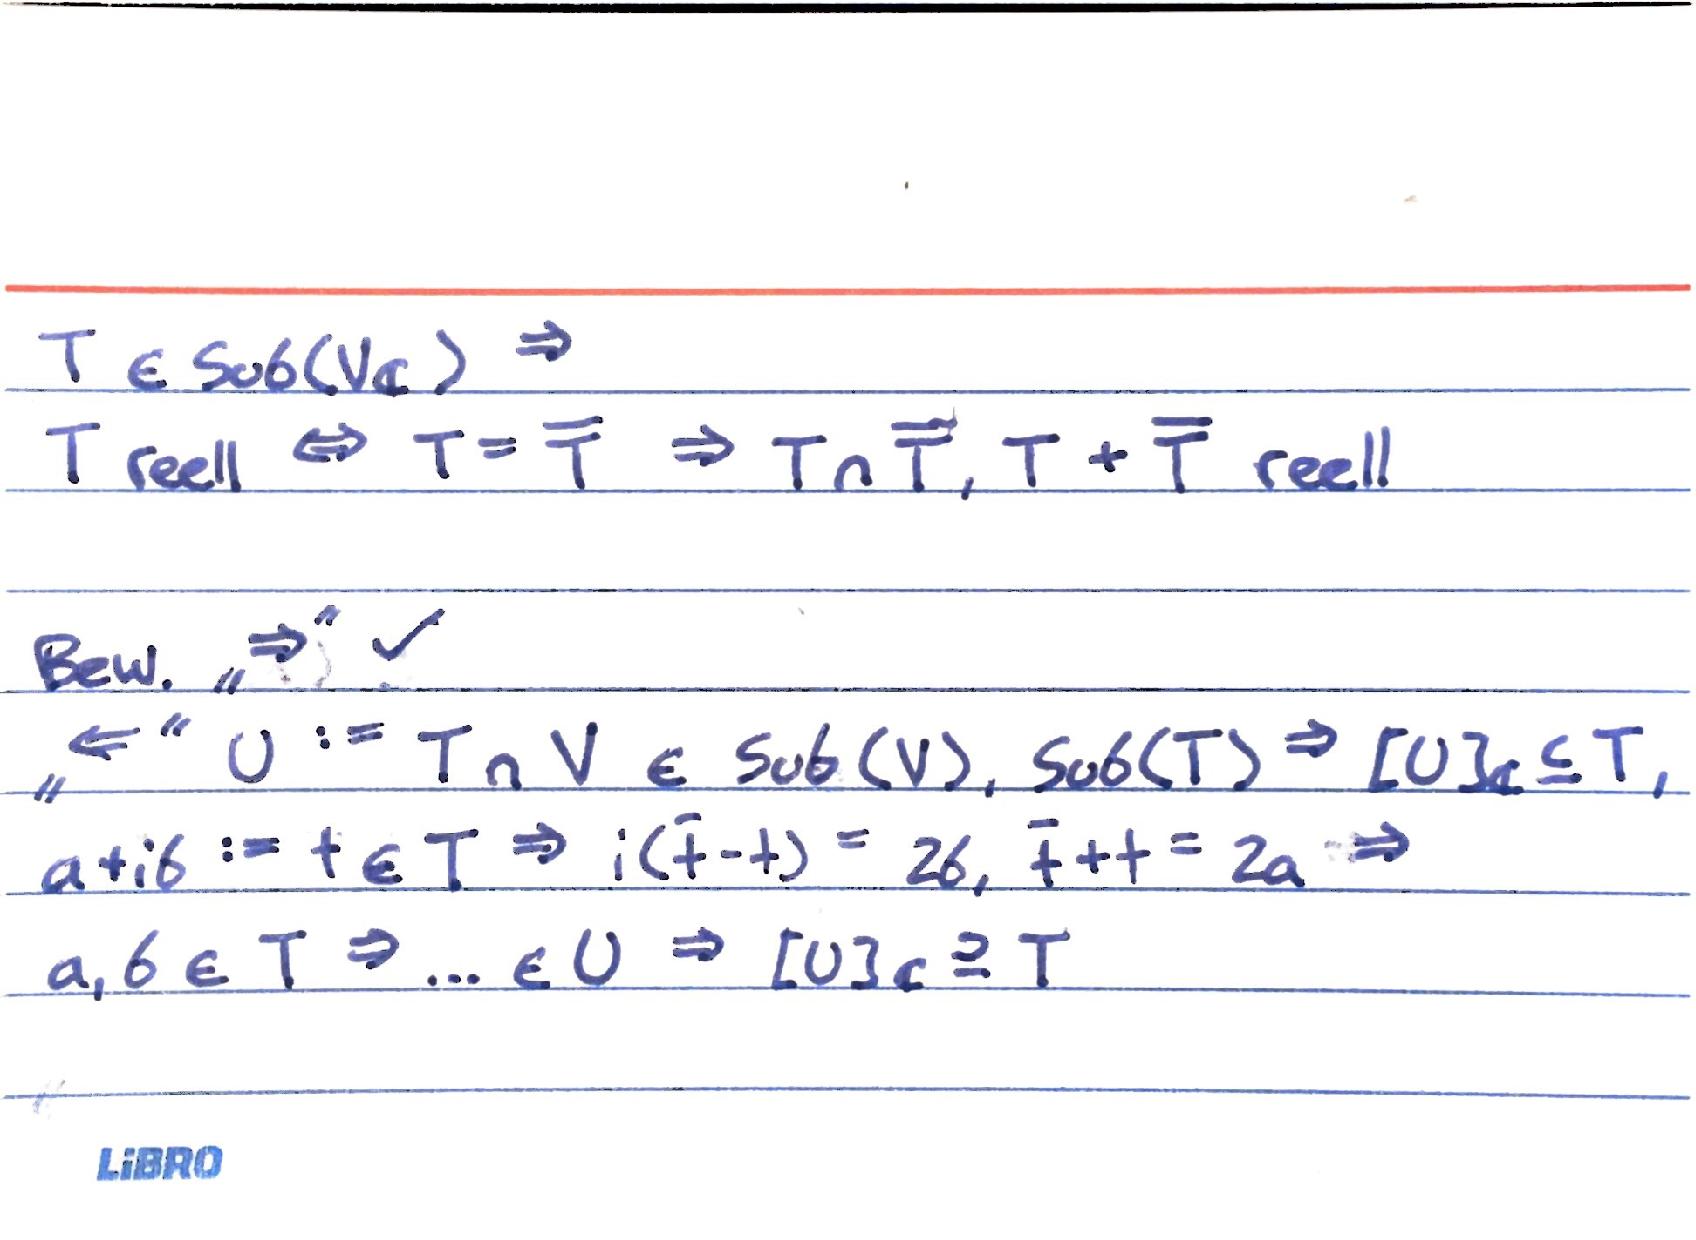 T ∈ Sub(V_ℂ) ⇒
T reell ⇔ T = T̅ ⇒ T ∩ T̅, T + T̅ reell
Bew. „⇒“ ✓
„⇐“ U := T ∩ V ∈ Sub(V), Sub(T) ⇒ [U]_ℂ ⊆ T,
a+ib := t ∈ T ⇒ i(t̅-t) = 2b, t̅+t = 2a ⇒
a,b ∈ T ⇒ ... ∈ U ⇒ [U]_ℂ ⊇ T
LiBRO